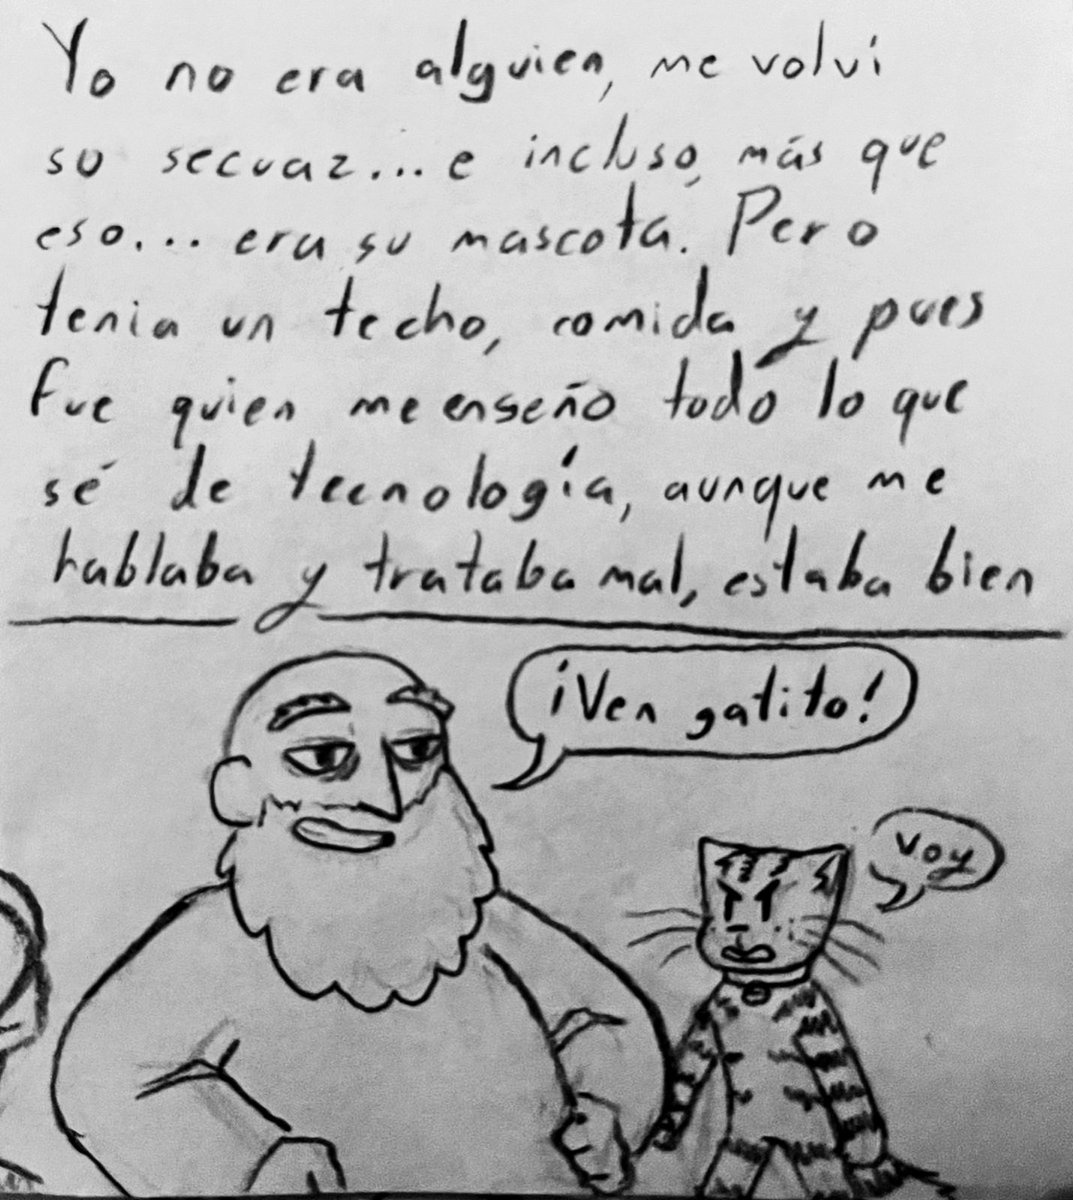 Yo no era alguien, me volví
su secuaz... e incluso, más que
eso... era su mascota. Pero
tenia un techo, comida y pues
fue quien me enseño todo lo que
sé de tecnología, aunque me
hablaba y trataba mal, estaba bien
¡Ven gatito!
Voy